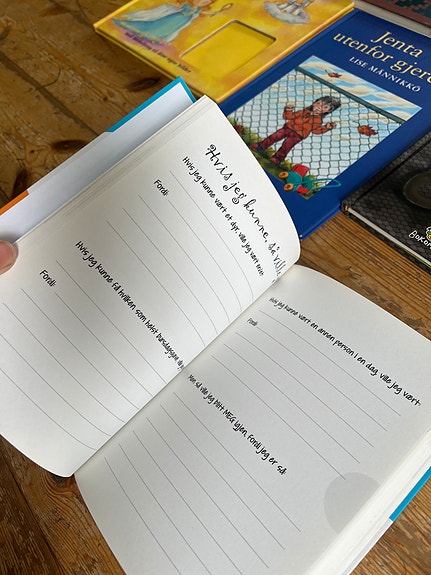 Jenta
utenfor gjer
LISE MÄNNIKKÖ
Hvis jeg kunne, så vill
Hvis jeg kunne vært et dyr, ville jeg vært
Fordi
Hvis jeg kunne få hvilken som helst bursdagsgave
Fordi
Hvis jeg kunne vært en annen person i en dag, ville jeg vært:
Fordi
Men så ville jeg blitt MEG igjen, fordi jeg er så: